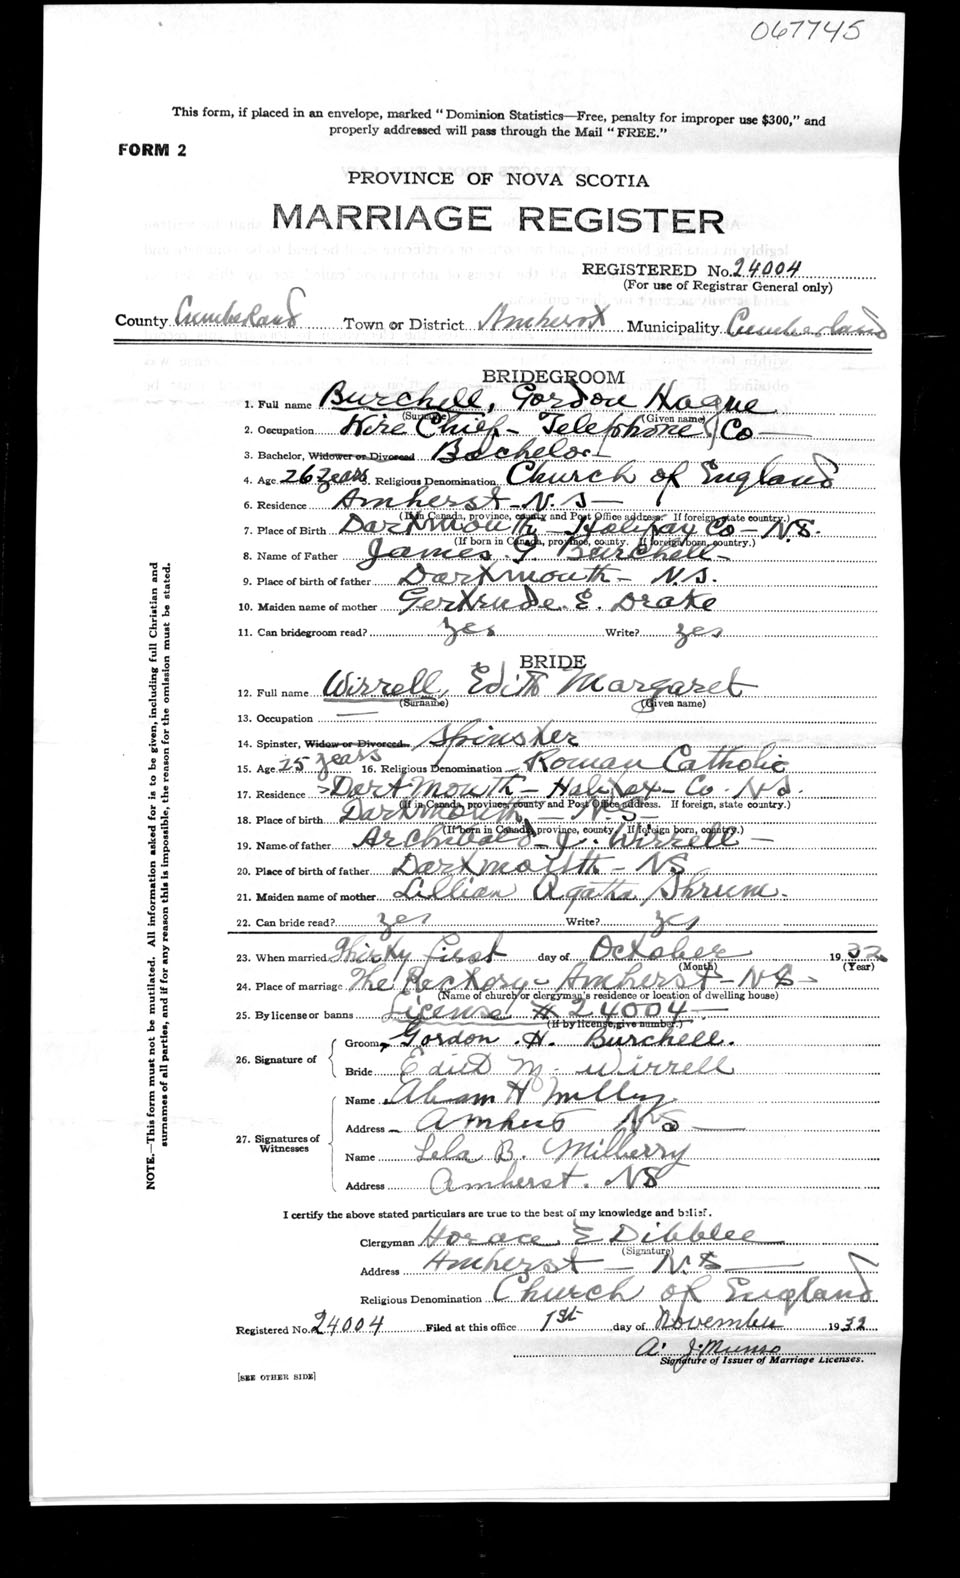 067745
This form, if placed in an envelope, marked "Dominion Statistics—Free, penalty for improper use $300," and
properly addressed will pass through the Mail "FREE."
FORM 2
PROVINCE OF NOVA SCOTIA
MARRIAGE REGISTER
REGISTERED No. 24004
(For use of Registrar General only)
County Cumberland Town or District Amherst Municipality Cumberland
BRIDEGROOM
1. Full name Burchell, Gordon Hogue
(Surname) (Given name)
2. Occupation Wire Chief - Telephone Co
3. Bachelor, Widower or Divorced Bachelor
4. Age 26 years 5. Religious Denomination Church of England
6. Residence Amherst - N.S.
(If in Canada, province, county and Post Office address. If foreign, state country.)
7. Place of Birth Dartmouth - Halifax Co - N.S.
(If born in Canada, province, county. If foreign born, country.)
8. Name of Father James Burchell
9. Place of birth of father Dartmouth - N.S.
10. Maiden name of mother Gertrude E. Drake
11. Can bridegroom read? yes Write? yes
BRIDE
12. Full name Wirrell, Edith Margaret
(Surname) (Given name)
13. Occupation —
14. Spinster, Widow or Divorced Spinster
15. Age 25 years 16. Religious Denomination Roman Catholic
17. Residence Dartmouth - Halifax - Co - N.S.
(If in Canada, province, county and Post Office address. If foreign, state country.)
18. Place of birth Dartmouth - N.S.
(If born in Canada, province, county If foreign born, country.)
19. Name of father Archibald J. Wirrell
20. Place of birth of father Dartmouth - NS
21. Maiden name of mother Lillian Agatha Shrum
22. Can bride read? yes Write? yes
23. When married Thirty first day of October 1932
(Month) (Year)
24. Place of marriage The Rectory - Amherst - NS
(Name of church or clergyman's residence or location of dwelling house)
25. By license or banns License # 24004
(If by license, give number.)
26. Signature of Groom Gordon H. Burchell.
Bride Edith M. Wirrell
27. Signatures of Witnesses
Name H
Address Amherst NS
Name Lela B. Milberry
Address Amherst. NS
I certify the above stated particulars are true to the best of my knowledge and belief.
Clergyman Horace E Dibblee
(Signature)
Address Amherst - N.S
Religious Denomination Church of England
Registered No. 24004 Filed at this office 1st day of November 1932
A. J. Munro
Signature of Issuer of Marriage Licenses.
[SEE OTHER SIDE]
NOTE.—This form must not be mutilated. All information asked for is to be given, including full Christian and
surnames of all parties, and if for any reason this is impossible, the reason for the omission must be stated.